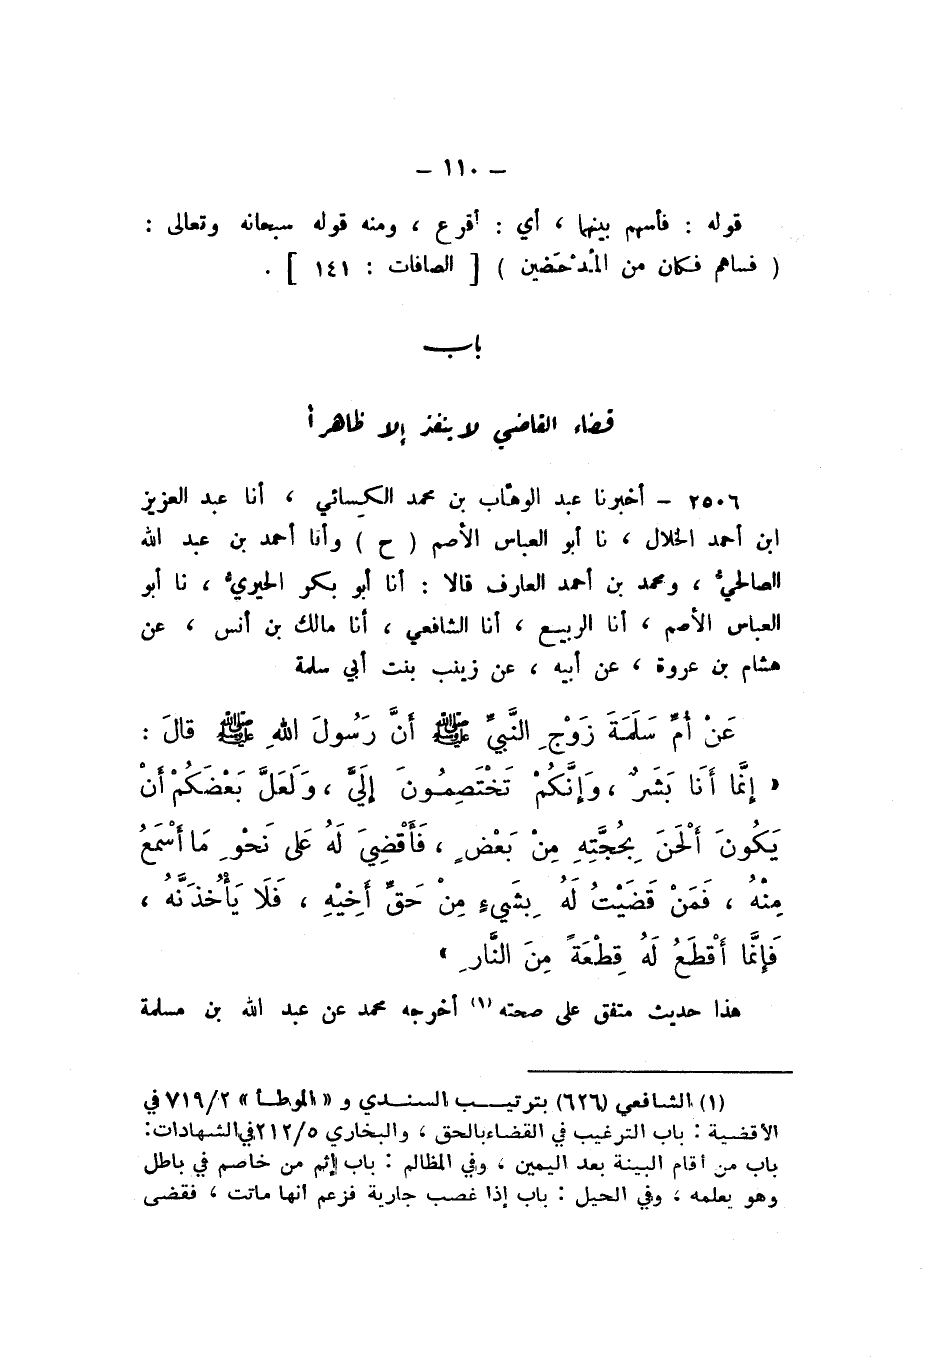 – ١١٠ –
قوله : فأسهم بينها ، أي : أقرع ، ومنه قوله سبحانه وتعالى :
( فساهم فكان من المُدْحَضين ) [ الصافات : ١٤١ ] .
باب
قضاء القاضي لا ينفذ إلا ظاهراً
٢٥٠٦ – أخبرنا عبد الوهّاب بن محمد الكِسائي ، أنا عبد العزيز
ابن أحمد الخلال ، نا أبو العباس الأصم ( ح ) وأنا أحمد بن عبد الله
الصالحيُّ ، ومحمد بن أحمد العارف قالا : أنا أبو بكر الحيريُّ ، نا أبو
العباس الأصم ، أنا الربيع ، أنا الشافعي ، أنا مالك بن أنس ، عن
هشام بن عروة ، عن أبيه ، عن زينب بنت أبي سلمة
عَنْ أُمِّ سَلَمَةَ زَوْجِ النَّبِيِّ ﷺ أَنَّ رَسُولَ اللهِ ﷺ قالَ :
« إِنَّمَا أَنَا بَشَرٌ ، وَإِنَّكُمْ تَخْتَصِمُونَ إِلَيَّ ، وَلَعَلَّ بَعْضَكُمْ أَنْ
يَكُونَ أَلْحَنَ بِحُجَّتِهِ مِنْ بَعْضٍ ، فَأَقْضِيَ لَهُ عَلى نَحْوِ مَا أَسْمَعُ
مِنْهُ ، فَمَنْ قَضَيْتُ لَهُ بِشَيءٍ مِنْ حَقِّ أَخِيْهِ ، فَلَا يَأْخُذَنَّهُ ،
فَإِنَّمَا أَقْطَعُ لَهُ قِطْعَةً مِنَ النَّارِ »
هذا حديث متفق على صحته (١) أخرجه محمد عن عبد الله بن مسلمة
(١) الشافعي (٦٢٦) بترتيب السندي و « الموطأ » ٧١٩/٢ في
الأقضية : باب الترغيب في القضاء بالحق ، والبخاري ٢١٢/٥ في الشهادات :
باب من أقام البينة بعد اليمين ، وفي المظالم : باب إثم من خاصم في باطل
وهو يعلمه ، وفي الحيل : باب إذا غصب جارية فزعم أنها ماتت ، فقضى